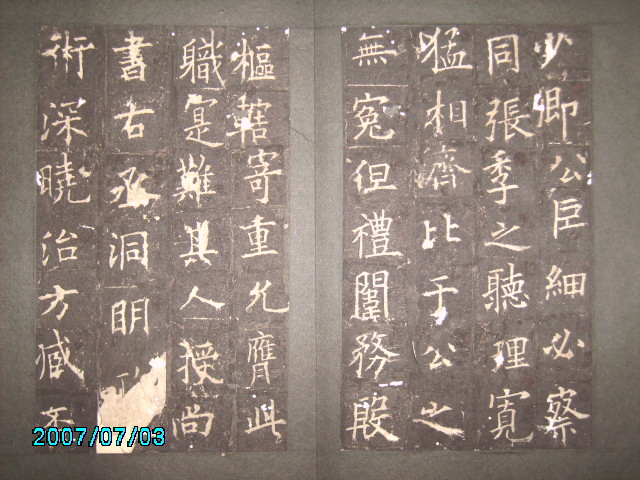 少卿公巨細必察
同張季之聽理寬
猛相濟比于公之
無冤但禮闈務殷
樞轄寄重允膺此
職寔難其人授尚
書右丞洞明
術深曉治方臧否
2007/07/03